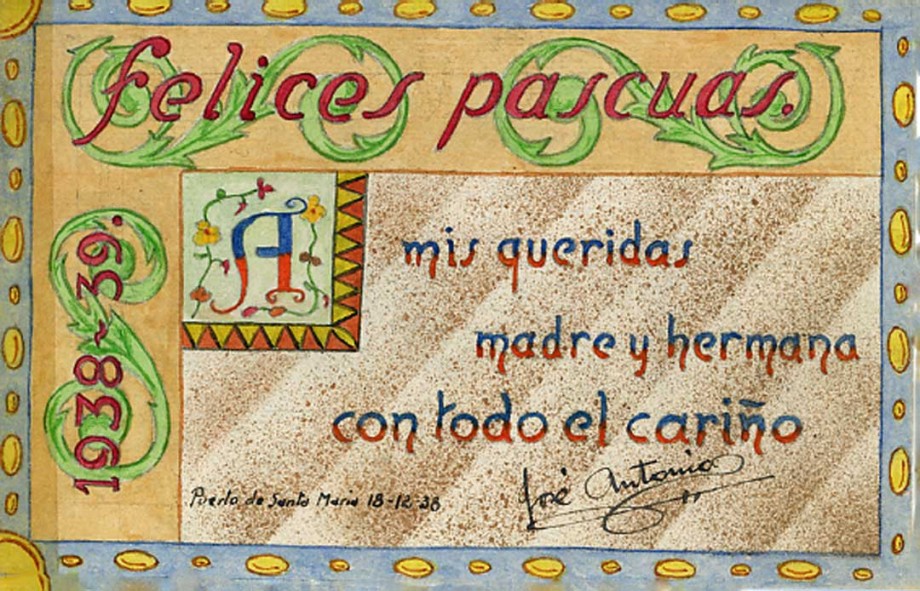 felices pascuas.
1938-39.
A mis queridas
madre y hermana
con todo el cariño
José Antonio
Puerto de Santa Maria 18-12-38